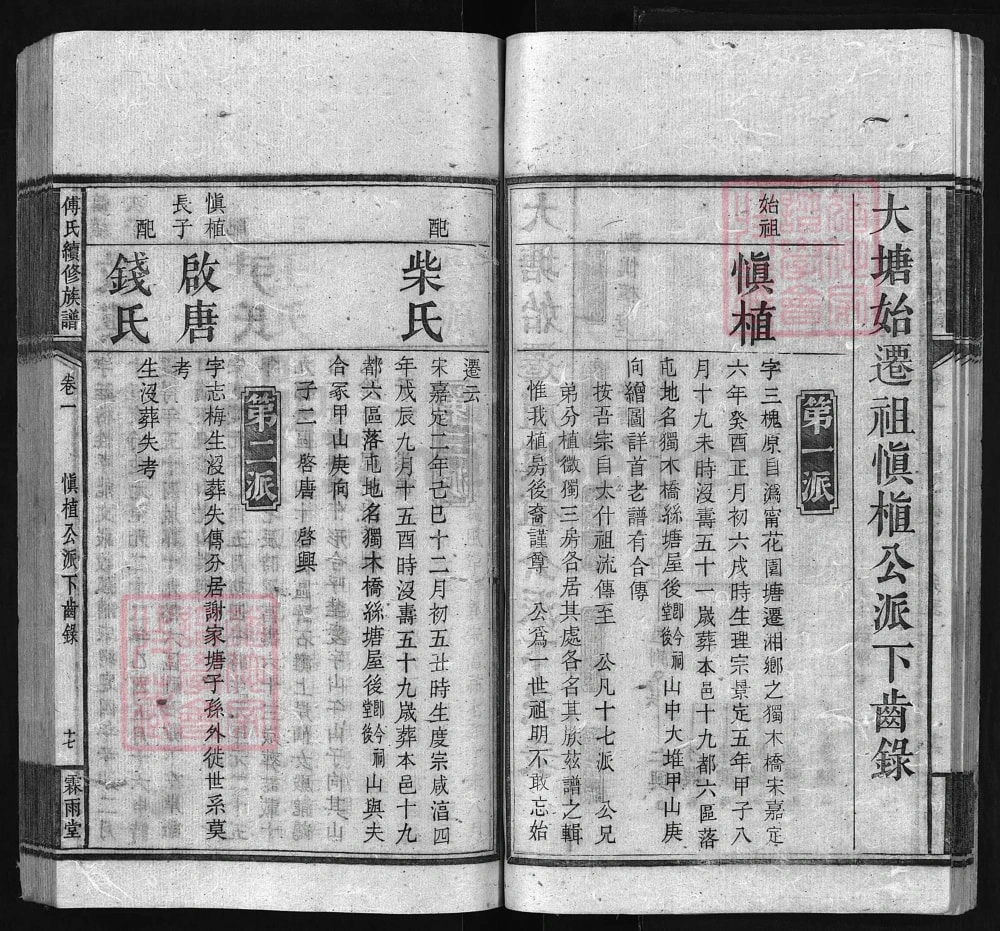 大塘始遷祖愼植公派下齒錄
第一派
始祖
愼植
字三槐原自潙甯花園塘遷湘鄉之獨木橋宋嘉定
六年癸酉正月初六戌時生理宗景定五年甲子八
月十九未時沒壽五十一歲葬本邑十九都六區落
屯地名獨木橋絲塘屋後卽今祠堂後山中大堆甲山庚
向繪圖詳首老譜有合傳
按吾宗自太什祖流傳至 公凡十七派 公兄
弟分植微獨三房各居其處各名其族茲譜之輯
惟我植房後裔謹尊 公爲一世祖明不敢忘始
遷云
配
柴氏
宋嘉定二年己巳十二月初五丑時生度宗咸淳四
年戊辰九月十五酉時沒壽五十九歲葬本邑十九
都六區落屯地名獨木橋絲塘屋後卽今祠堂後山與夫
合冢甲山庚向
子二 啓唐 啓興
第二派
愼植
長子
啟唐
字志梅生沒葬失傳分居謝家塘子孫外徙世系莫
考
配
錢氏
生沒葬失考
傅氏續修族譜
卷一
愼植公派下齒錄
十七
霖雨堂